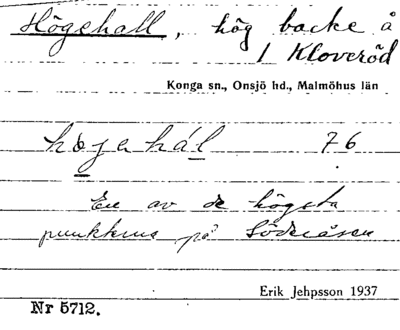 Högehall, hög backe å
1 Kloveröd
Konga sn., Onsjö hd., Malmöhus län
højahál 76
En av de högsta
punkterna på Söderåsen
Erik Jehpsson 1937
Nr 5712.